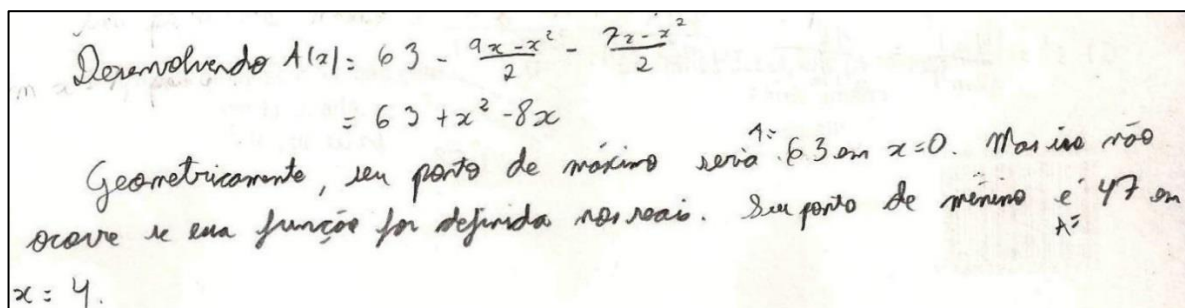 Desenvolvendo A(x) = 63 - \frac{9x-x^2}{2} - \frac{7x-x^2}{2}
= 63 + x² - 8x
Geometricamente, seu ponto de máximo seria A= 63 em x=0. Mas isso não
ocorre se essa função for definida nos reais. Seu ponto de mínimo é A= 47 em
x = 4.